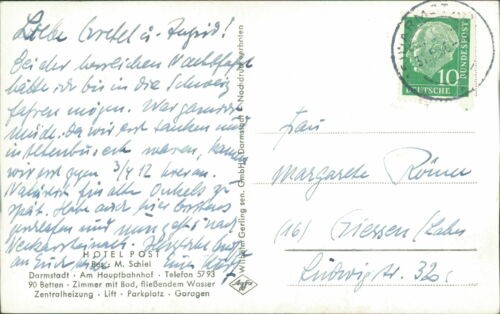 Liebe Gretel u. Ingrid!
Bei der herrlichen Nachtfahrt
hätte ich bis in die Schweiz
fahren mögen. War garnicht
müde. Da wir erst tanken und
in waren,
wir erst gegen 3/4 12
Natürlich für alte Onkels zu
spät. Habe auch hier bestens
und nun geht's nach
Neckarsteinach. Herzliche
an Euch
HOTEL POST
Bes. M. Schiel
Darmstadt · Am Hauptbahnhof · Telefon 5793
90 Betten · Zimmer mit Bad, fließendem Wasser
Zentralheizung · Lift · Parkplatz · Garagen
Wilhelm Gerling sen. GmbH. Darmstadt · Nachdruck verboten
Agfa
DARMSTADT
10
DEUTSCHE
BUNDESPOST
Frau
Margarete Römer
(16) Giessen/Lahn
Ludwigstr. 32